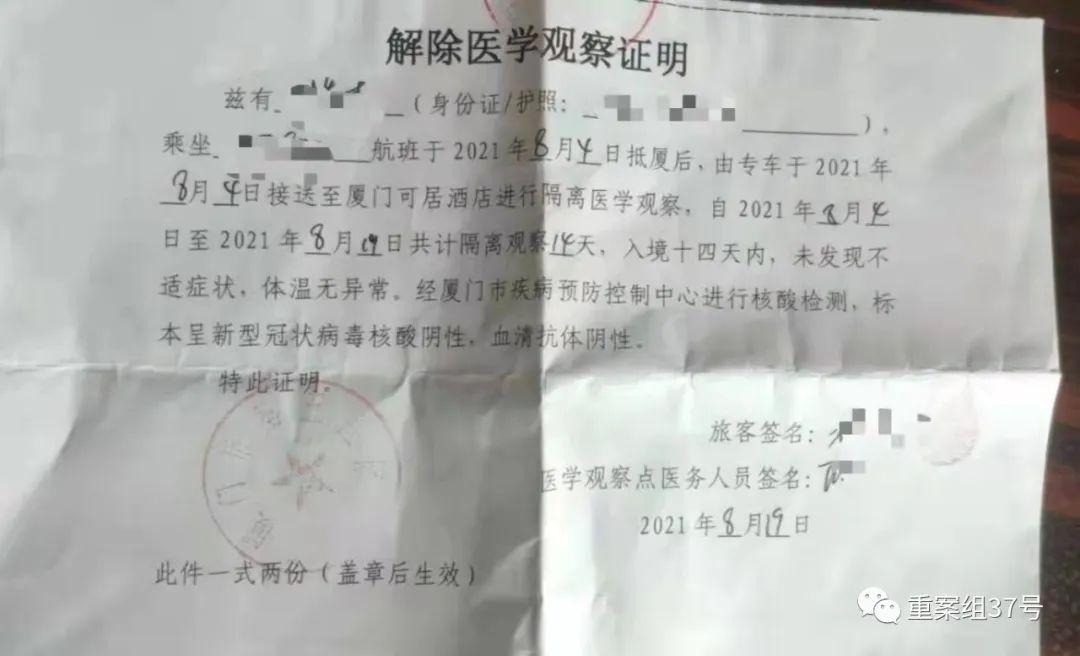 解除医学观察证明
兹有 （身份证/护照： ），
乘坐 航班于 2021 年8月4日抵厦后，由专车于 2021 年
8月4日接送至厦门可居酒店进行隔离医学观察，自 2021 年8月4
日至 2021 年8月19日共计隔离观察14天，入境十四天内，未发现不
适症状，体温无异常。经厦门市疾病预防控制中心进行核酸检测，标
本呈新型冠状病毒核酸阴性，血清抗体阴性。
特此证明。
旅客签名：
医学观察点医务人员签名：
2021 年8月19日
此件一式两份（盖章后生效）
重案组37号